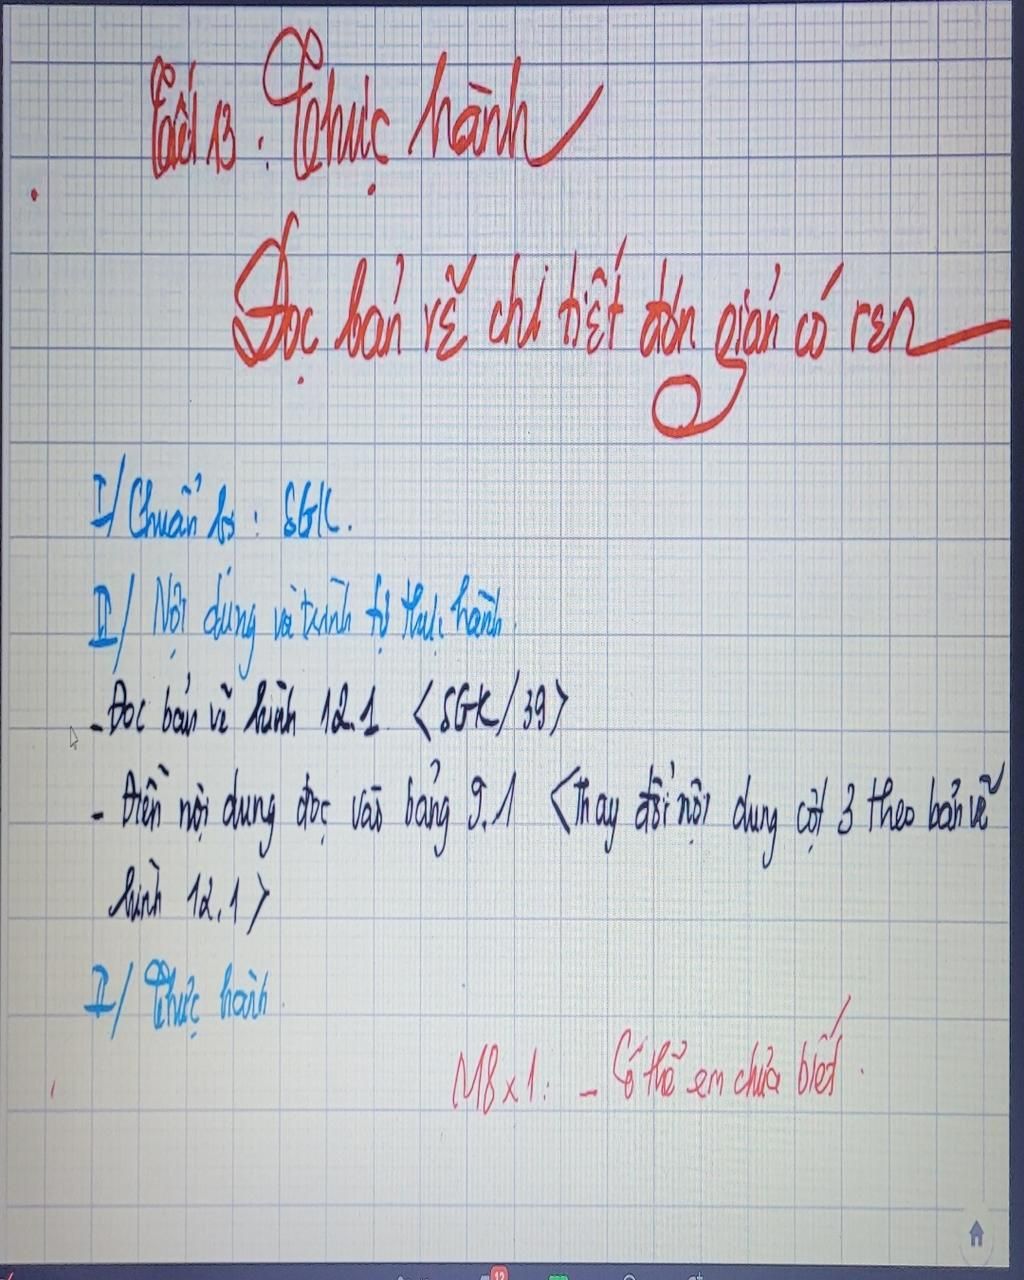 Tiết 13 : Thực hành
Đọc bản vẽ chi tiết đơn giản có ren
I/ Chuẩn bị : SGK.
II/ Nội dung và trình tự thực hành.
- Đọc bản vẽ hình 12.1 <SGK/39>
- Điền nội dung đọc vào bảng 9.1 <Thay đổi nội dung cột 3 theo bản vẽ
hình 12.1>
II/ Thực hành.
M8x1: - Có thể em chưa biết.
12